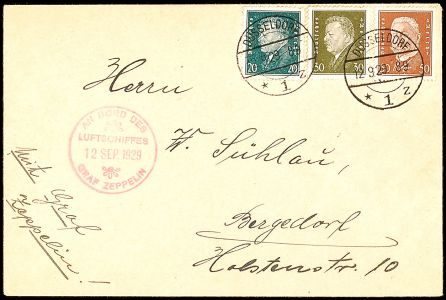 DÜSSELDORF
12.9.29.8-9
* 1 z
DÜSSELDORF
* 1 z
20 20
50
50 50
Herrn
AN BORD DES
LUFTSCHIFFES
12 SEP. 1929
GRAF ZEPPELIN
W. Sühlau,
Mit Graf
Zeppelin!
Bergedorf
Holstenstr. 10